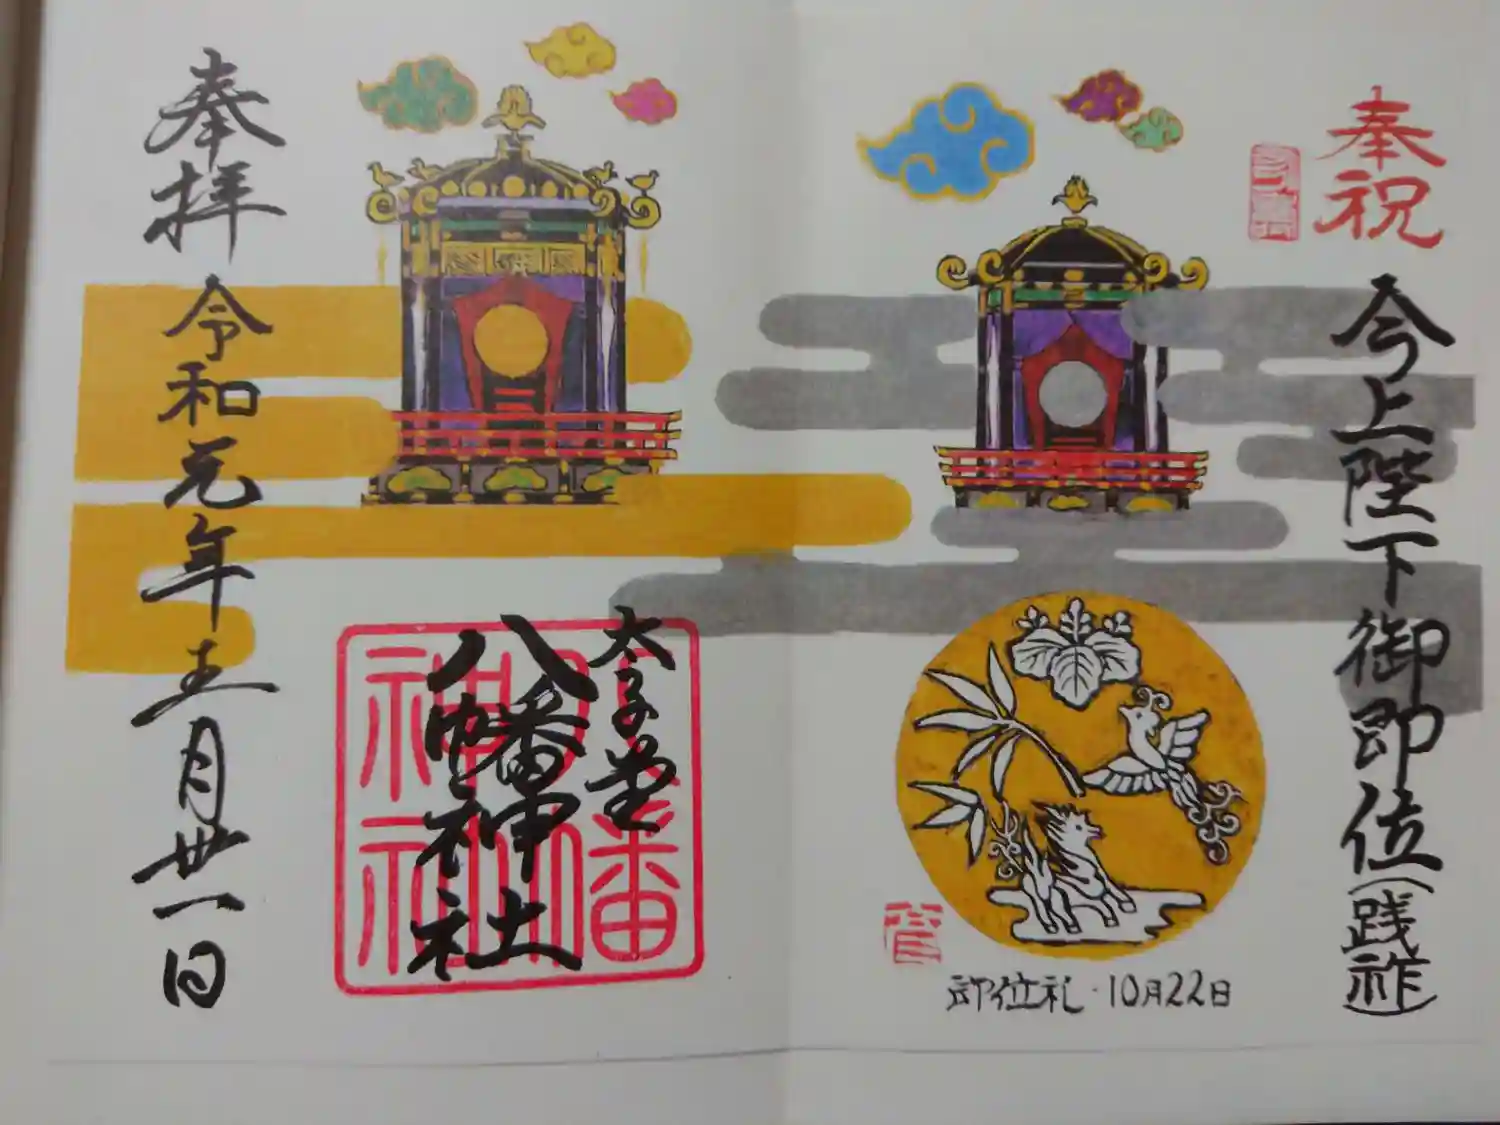 奉祝
今上陛下御即位(践祚)
即位礼・10月22日
太子堂
八幡神社
八幡神社
奉拝
令和元年五月卅一日